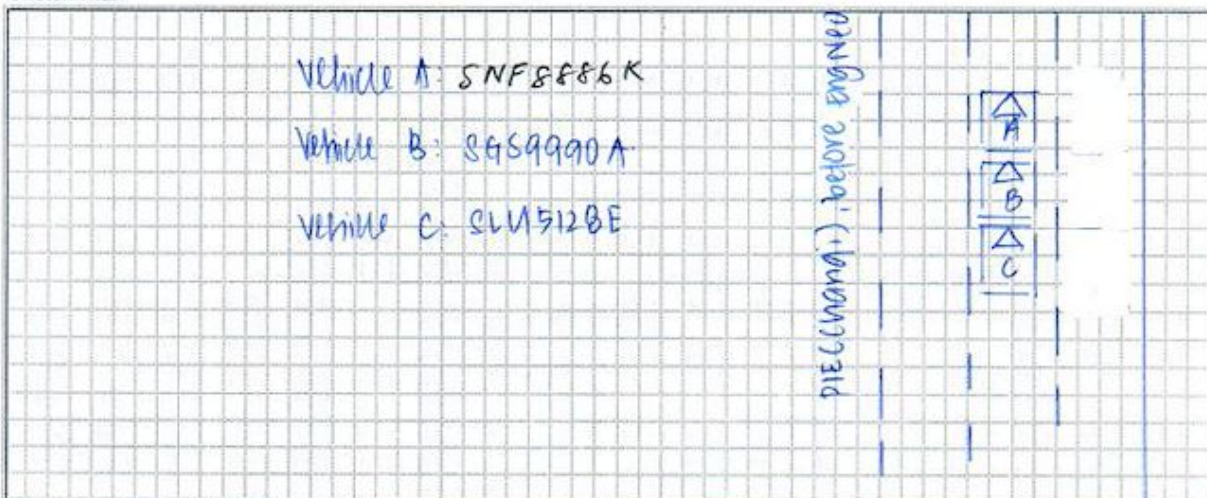 Vehicle A: SNF8886K
Vehicle B: SGS9990A
Vehicle C: SLU5128E
PIE(Changi), before
A
B
C